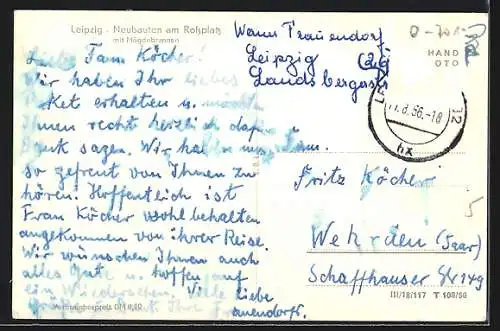 Leipzig - Neubauten am Roßplatz
mit Mägdebrunnen
Liebe Fam. Köcher!
Wir haben Ihr liebes
Paket erhalten u. möchten
Ihnen recht herzlich dafür
Dank sagen. Wir haben uns
so gefreut von Ihnen zu
hören. Hoffentlich ist
Frau Köcher wohlbehalten
angekommen von ihrer Reise.
Wir wünschen Ihnen auch
alles Gute u. hoffen auf
ein Wiedersehen. Viele liebe
Grüße Ihre Frauendorfs.
Verbraucherpreis DM 0,20
Wann Frauendorf
Leipzig
Landsbergerstr
HAND
OTO
.8.56.-18
12
Fam.
Fritz Köcher
Wehrden (Saar)
Schaffhauser Str 149
5
III/18/117 T 108/56